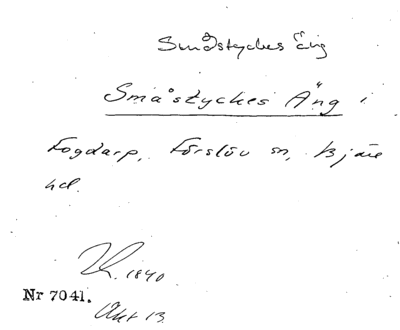 Småstyckes Äng
Småstyckes Äng i
Fogdarp, Förslöv sn, Bjäre
hd.
1840
Nr 7041.
Akt 13